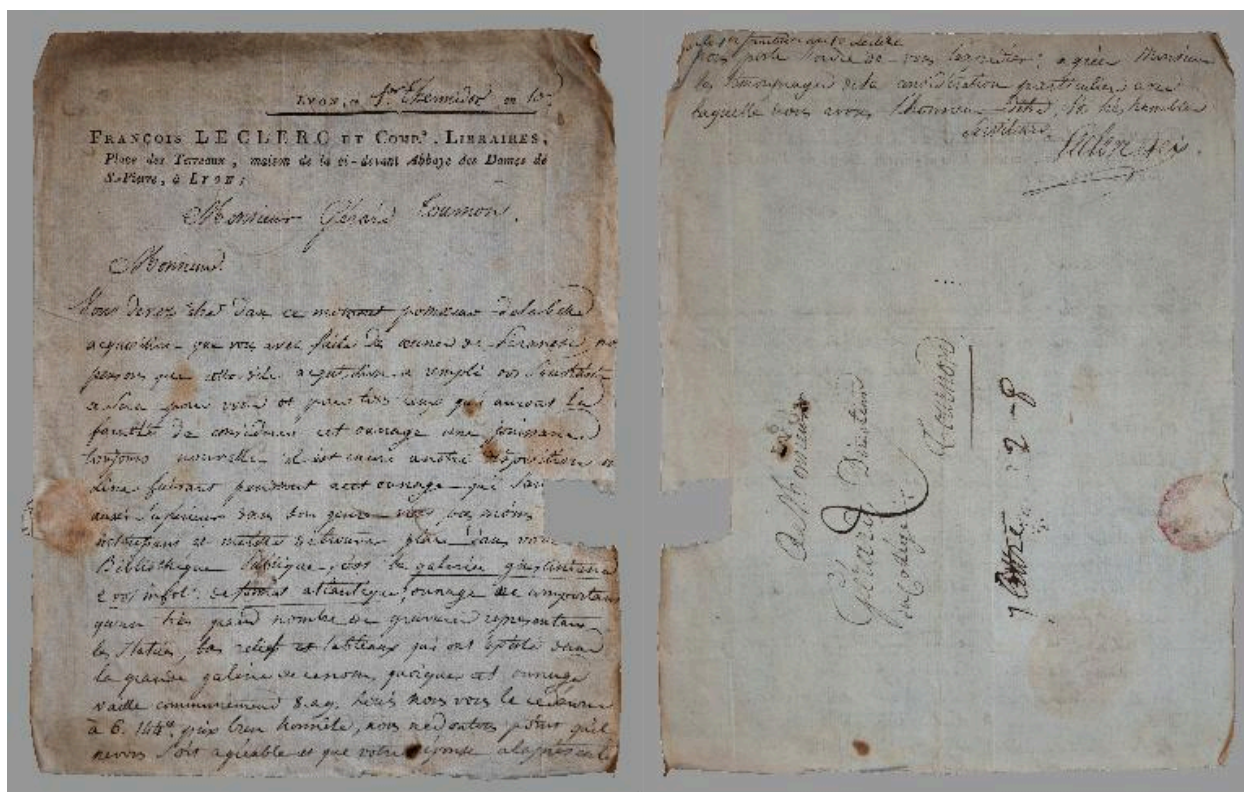 LYON, le 1er Thermidor an 10
FRANÇOIS LECLERC ET COMP.e, LIBRAIRES,
Place des Terreaux, maison de la ci-devant Abbaye des Dames de
St-Pierre, à LYON;
Monsieur Gerard Tournon.
Monsieur
Vous devez etre dans ce moment possesseur de la belle
acquisition que vous avez faite des œuvres de Piranese, nous
pensons que cette acquisition a rempli vos souhaits
sera pour vous et pour tous ceux qui auront la
faculté de considerer cet ouvrage une jouissance
toujours nouvelle il est encore a notre disposition
un livre faisant pendant a cet ouvrage qui
aussi superieur dans son genre
et merite de trouver place dans votre
Bibliothèque publique, c'est la galerie giustiniana
2 vol in fol. de format atlantique, ouvrage
qu'un très grand nombre de gravures representant
les statues, bas reliefs et tableaux qui ont existé dans
la grande galerie de ce nom, quoique cet ouvrage
vaille communement 8. à 9. louis nous vous le cederons
à 6. 144# prix bien honnête, nous ne doutons point qu'il
ne vous soit agréable et que votre réponse a la présente
nous porte l'ordre de vous l'expedier; agréer Monsieur
les temoignages de la considération particuliere avec
laquelle nous avons l'honneur d'etre, vos très humbles
serviteurs
A Monsieur
Gérard Directeur
du College
Tournon
7 lettre 2-8